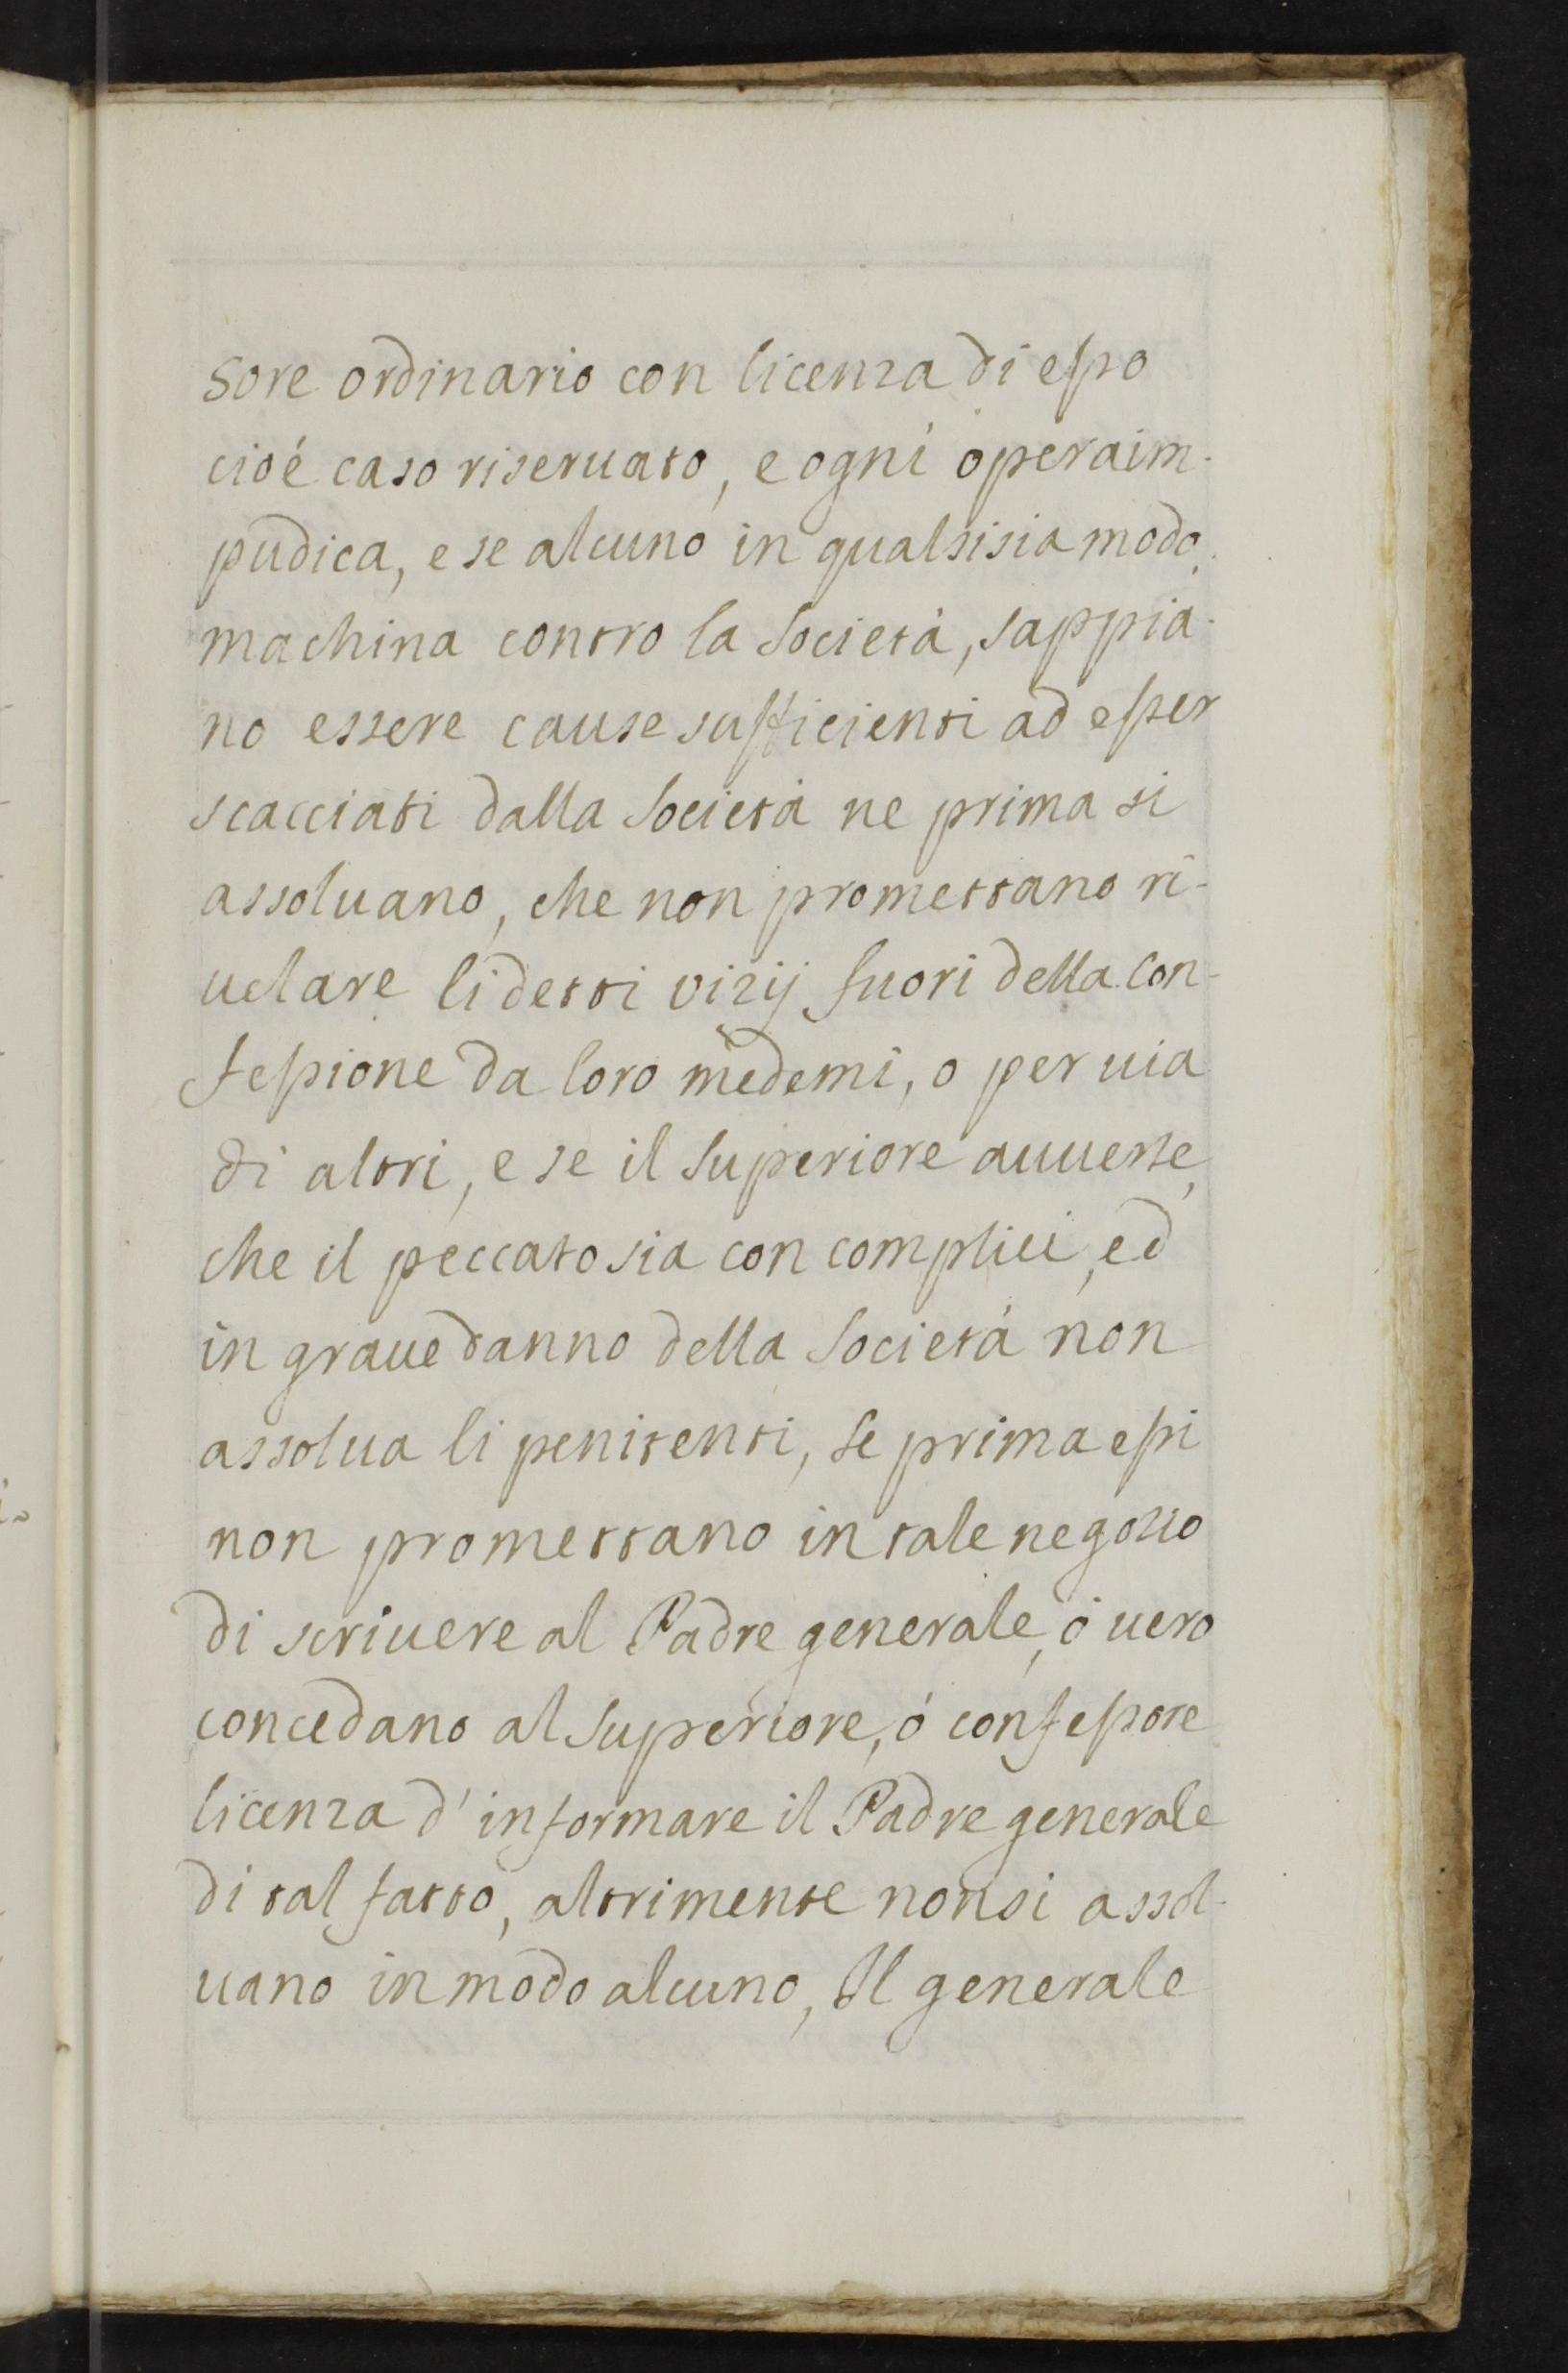 sore ordinario con licenza di esso
cioé caso riseruato, e ogni opera im-
pudica, e se alcuno in qualsisia modo
machina contro la Società, sappia-
no essere cause sufficienti ad esser
scacciati dalla Società ne prima si
assoluano, che non promettano ri-
uelare li detti vizij fuori della con-
fessione da loro medemi, o per uia
di altri, e se il Superiore auuerte,
che il peccato sia con complici, ed
in graue danno della Società non
assolua li penitenti, se prima essi
non promettano in tale negozio
di scriuere al Padre generale, ó uero
concedano al Superiore, ó confessore
licenza d'informare il Padre generale
di tal fatto, altrimente non si assol-
uano in modo alcuno, Il generale